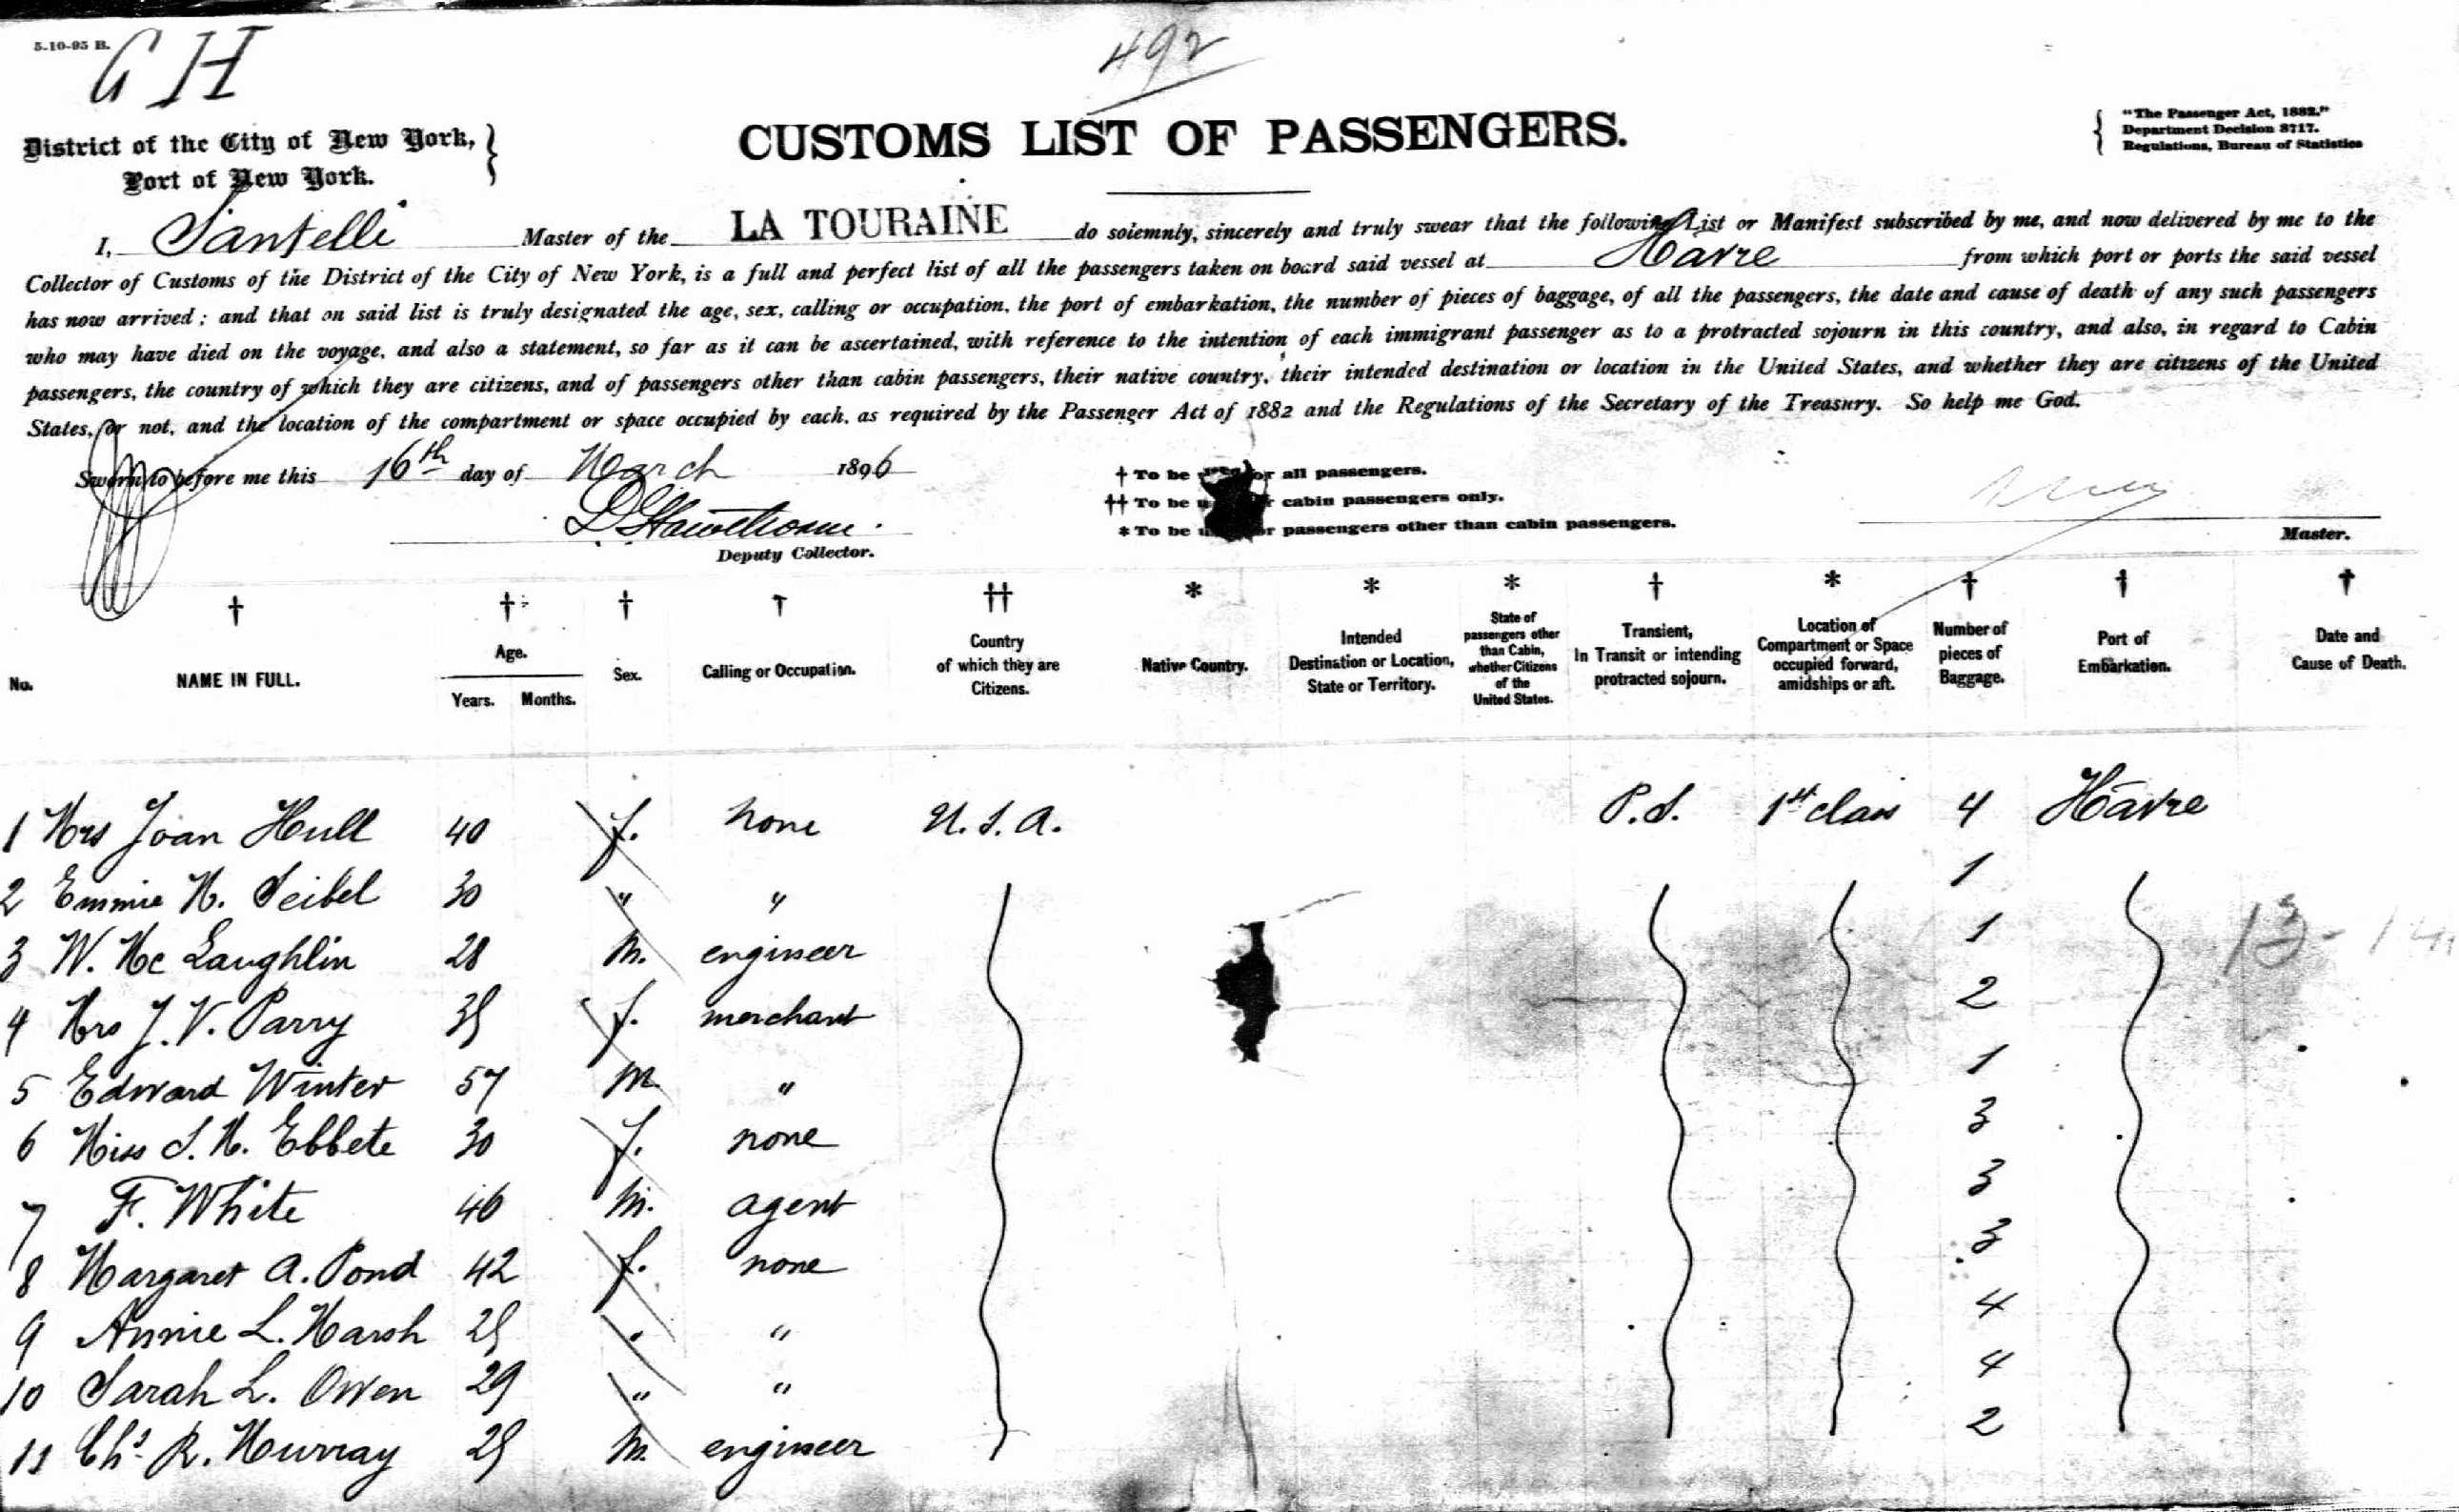 5-10-95 B.
G H
492
District of the City of New York,
Port of New York.
CUSTOMS LIST OF PASSENGERS.
"The Passenger Act, 1882."
Department Decision 8717.
Regulations, Bureau of Statistics
I, Santelli Master of the LA TOURAINE do solemnly, sincerely and truly swear that the following List or Manifest subscribed by me, and now delivered by me to the
Collector of Customs of the District of the City of New York, is a full and perfect list of all the passengers taken on board said vessel at Havre from which port or ports the said vessel
has now arrived; and that on said list is truly designated the age, sex, calling or occupation, the port of embarkation, the number of pieces of baggage, of all the passengers, the date and cause of death of any such passengers
who may have died on the voyage, and also a statement, so far as it can be ascertained, with reference to the intention of each immigrant passenger as to a protracted sojourn in this country, and also, in regard to Cabin
passengers, the country of which they are citizens, and of passengers other than cabin passengers, their native country, their intended destination or location in the United States, and whether they are citizens of the United
States, or not, and the location of the compartment or space occupied by each, as required by the Passenger Act of 1882 and the Regulations of the Secretary of the Treasury. So help me God.
Sworn to before me this 16th day of March 1896
† To be or all passengers.
†† To be cabin passengers only.
* To be or passengers other than cabin passengers.
D. Hawthorne.
Deputy Collector.
Master.
† † † † †† * * * † * † † †
No. NAME IN FULL. Age. Years. Months. Sex. Calling or Occupation. Country of which they are Citizens. Native Country. Intended Destination or Location, State or Territory. State of passengers other than Cabin, whether Citizens of the United States. Transient, In Transit or intending protracted sojourn. Location of Compartment or Space occupied forward, amidships or aft. Number of pieces of Baggage. Port of Embarkation. Date and Cause of Death.
1 Mrs Joan Hull 40 f. none U.S.A. P.S. 1st class 4 Havre
2 Emmie M. Seibel 30 " " 1
3 W. Mc Laughlin 28 m. engineer 1
4 Mrs J. V. Parry 35 f. merchant 2
5 Edward Winter 57 m " 1
6 Miss S. M. Ebbete 30 f. none 3
7 F. White 46 m. agent 3
8 Margaret A. Pond 42 f. none 3
9 Annie L. Marsh 25 " " 4
10 Sarah L. Owen 29 " " 4
11 Chs. R. Murray 25 m. engineer 2